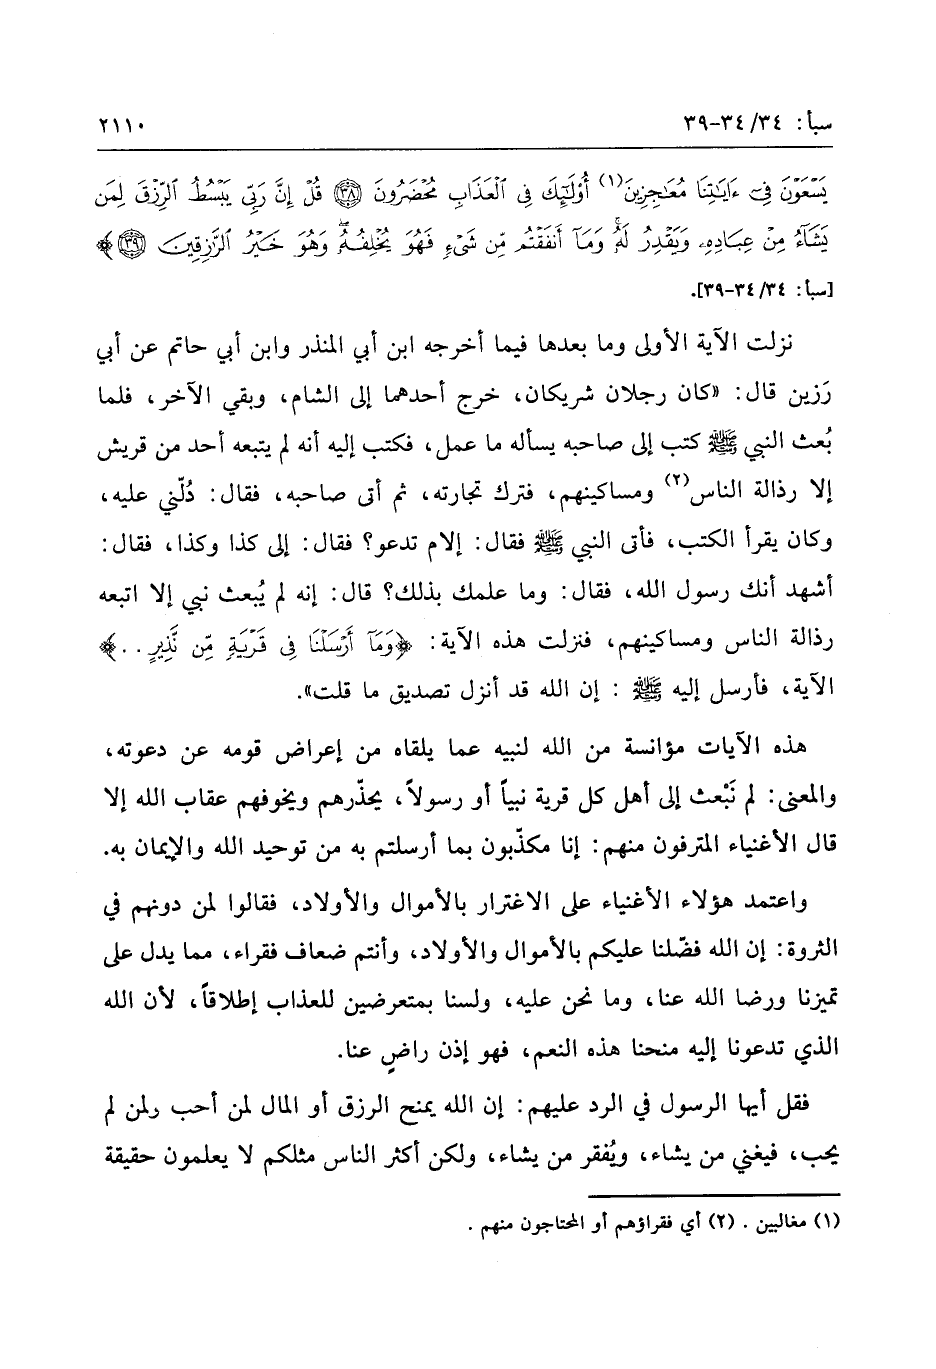 سبأ: ٣٤/ ٣٤-٣٩ ٢١١٠
يَسْعَوْنَ فِىٓ ءَايَٰتِنَا مُعَٰجِزِينَ(١) أُوْلَٰٓئِكَ فِى ٱلْعَذَابِ مُحْضَرُونَ ٣٨ قُلْ إِنَّ رَبِّى يَبْسُطُ ٱلرِّزْقَ لِمَن
يَشَآءُ مِنْ عِبَادِهِۦ وَيَقْدِرُ لَهُۥ وَمَآ أَنفَقْتُم مِّن شَىْءٍ فَهُوَ يُخْلِفُهُۥ وَهُوَ خَيْرُ ٱلرَّٰزِقِينَ ٣٩﴾
[سبأ: ٣٤/ ٣٤-٣٩].
نزلت الآية الأولى وما بعدها فيما أخرجه ابن أبي المنذر وابن أبي حاتم عن أبي
رَزين قال: «كان رجلان شريكان، خرج أحدهما إلى الشام، وبقي الآخر، فلما
بُعث النبي ﷺ كتب إلى صاحبه يسأله ما عمل، فكتب إليه أنه لم يتبعه أحد من قريش
إلا رذالة الناس(٢) ومساكينهم، فترك تجارته، ثم أتى صاحبه، فقال: دُلّني عليه،
وكان يقرأ الكتب، فأتى النبي ﷺ فقال: إلام تدعو؟ فقال: إلى كذا وكذا، فقال:
أشهد أنك رسول الله، فقال: وما علمك بذلك؟ قال: إنه لم يُبعث نبي إلا اتبعه
رذالة الناس ومساكينهم، فنزلت هذه الآية: ﴿وَمَآ أَرْسَلْنَا فِى قَرْيَةٍ مِّن نَّذِيرٍ..﴾
الآية، فأرسل إليه ﷺ : إن الله قد أنزل تصديق ما قلت».
هذه الآيات مؤانسة من الله لنبيه عما يلقاه من إعراض قومه عن دعوته،
والمعنى: لم نَبْعث إلى أهل كل قرية نبياً أو رسولاً، يحذّرهم ويخوفهم عقاب الله إلا
قال الأغنياء المترفون منهم: إنا مكذّبون بما أرسلتم به من توحيد الله والإيمان به.
واعتمد هؤلاء الأغنياء على الاغترار بالأموال والأولاد، فقالوا لمن دونهم في
الثروة: إن الله فضّلنا عليكم بالأموال والأولاد، وأنتم ضعاف فقراء، مما يدل على
تميزنا ورضا الله عنا، وما نحن عليه، ولسنا بمتعرضين للعذاب إطلاقاً، لأن الله
الذي تدعونا إليه منحنا هذه النعم، فهو إذن راضٍ عنا.
فقل أيها الرسول في الرد عليهم: إن الله يمنح الرزق أو المال لمن أحب ولمن لم
يحب، فيغني من يشاء، ويُفقر من يشاء، ولكن أكثر الناس مثلكم لا يعلمون حقيقة
(١) مغالبين . (٢) أي فقراؤهم أو المحتاجون منهم .